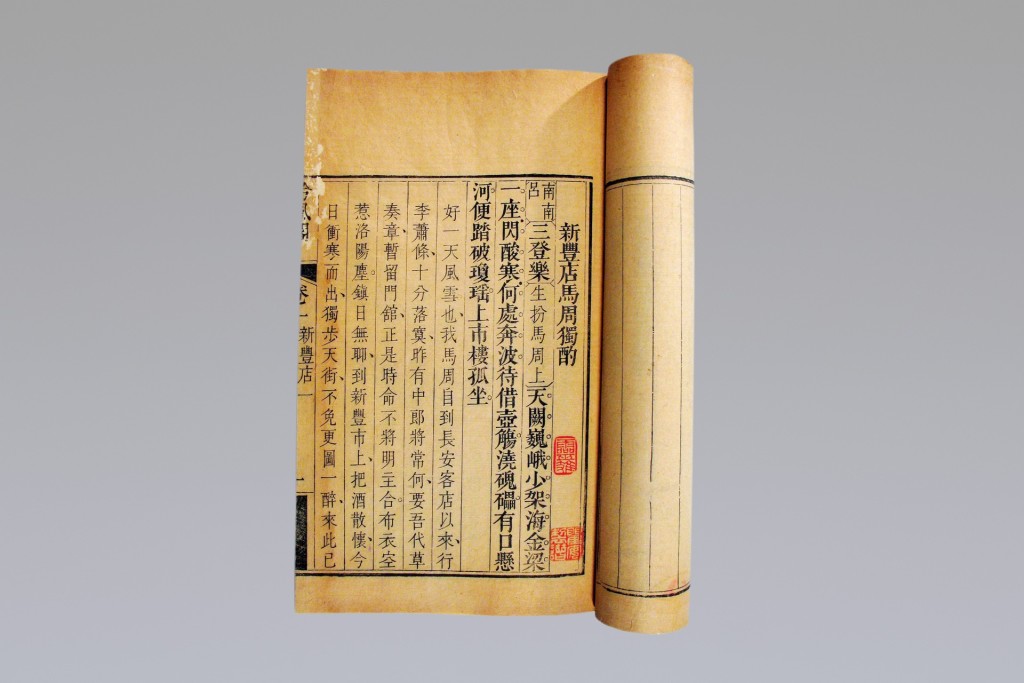 新豐店馬周獨酌
南呂南三登樂生扮馬周上天闕巍峨少架海金梁
一座閃酸寒何處奔波待借壺觴澆磈礧有口懸
河便踏破瓊瑶上市樓孤坐
好一天風雪也我馬周自到長安客店以來行
李蕭條十分落寞昨有中郎將常何要吾代草
奏章暫留門舘正是時命不將明主合布衣空
惹洛陽塵鎭日無聊到新豐市上把酒散懷今
日衝寒而出獨步天街不免更圖一醉來此已
吟風閣 卷一 新豐店 一